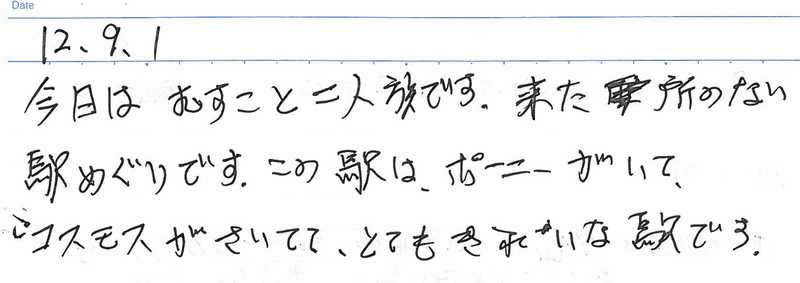 Date
12、9、1
今日はむすこと二人旅です。来た事所のない
駅めぐりです。この駅は、ポーニーがいて、
コスモスがさいてて、とてもきれいな駅です。